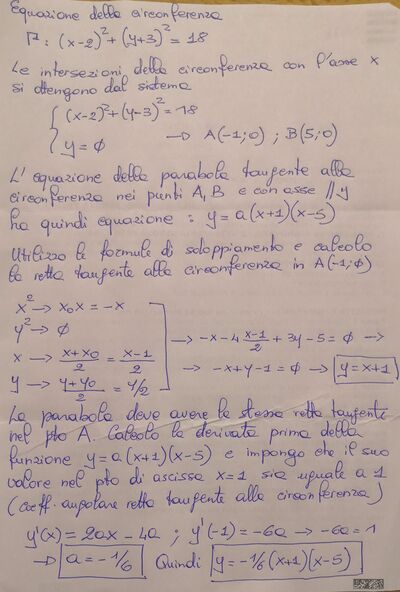 Equazione della circonferenza
Γ: (x-2)²+(y+3)²=18
Le intersezioni della circonferenza con l'asse x
si ottengono dal sistema
{ (x-2)²+(y-3)²=18
y=0 → A(-1;0) ; B(5;0)
L'equazione della parabola tangente alla
circonferenza nei punti A, B e con asse // y
ha quindi equazione : y=a(x+1)(x-5)
Utilizzo le formule di sdoppiamento e calcolo
la retta tangente alla circonferenza in A(-1;0)
x² → x₀x = -x
y² → 0
x → (x+x₀)/2 = (x-1)/2 → -x-4 (x-1)/2 + 3y-5=0 →
y → (y+y₀)/2 = y/2 → -x+y-1=0 → y=x+1
La parabola deve avere la stessa retta tangente
nel pto A. Calcolo la derivata prima della
funzione y=a(x+1)(x-5) e impongo che il suo
valore nel pto di ascissa x=1 sia uguale a 1
(coeff. angolare retta tangente alla circonferenza)
y'(x)=2ax-4a ; y'(-1)=-6a → -6a=1
→ a=-1/6 Quindi y=-1/6(x+1)(x-5)